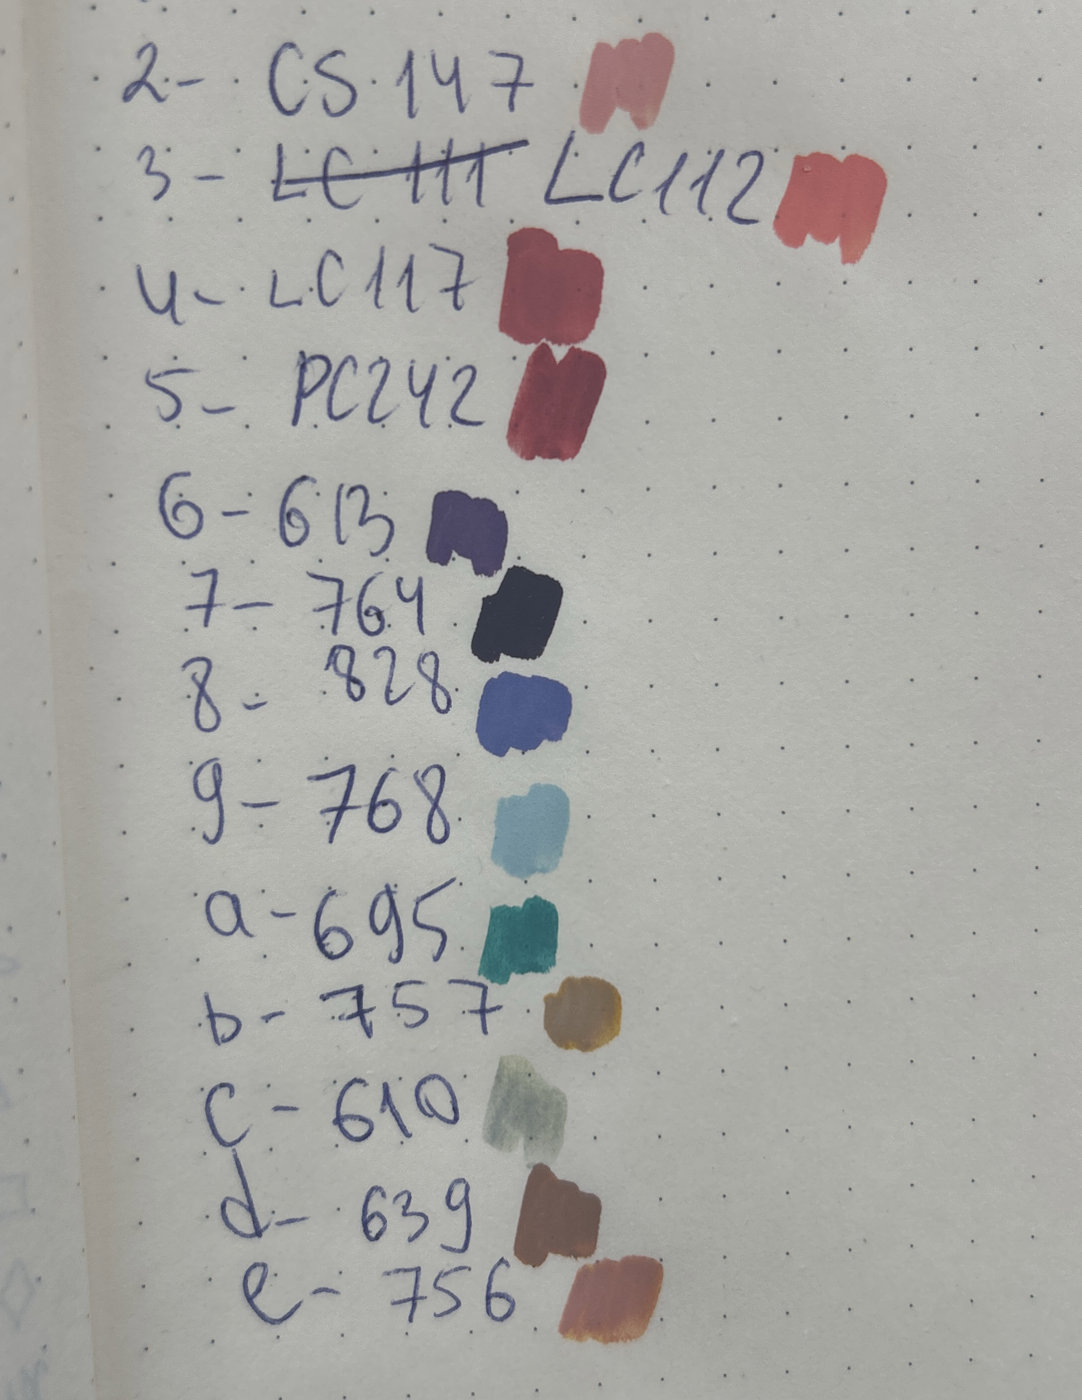 2- CS 147
3- LC 111 LC112
4- LC117
5- PC242
6- 613
7- 764
8- 828
9- 768
a- 695
b- 757
c- 610
d- 639
e- 756